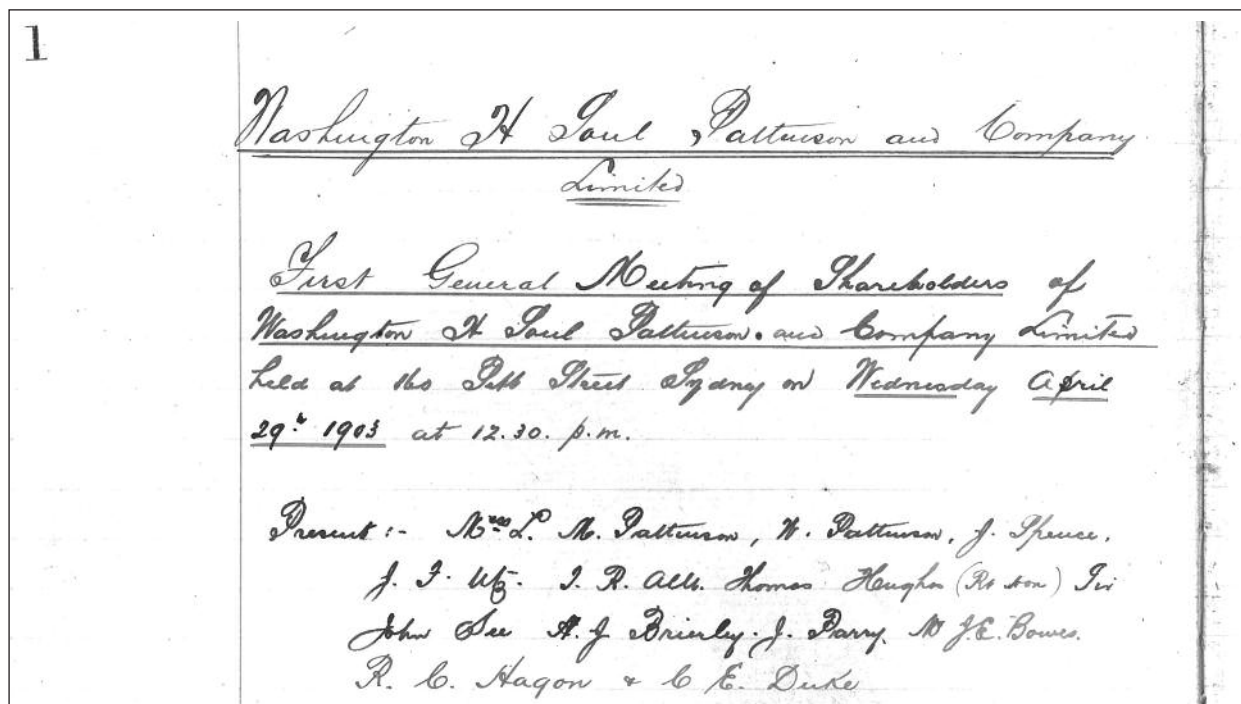 1
Washington H Soul Pattinson and Company
Limited
First General Meeting of Shareholders of
Washington H Soul Pattinson and Company Limited
held at 160 Pitt Street Sydney on Wednesday April
29th 1903 at 12.30. p.m.
Present :- Mrs L. M. Pattinson, W. Pattinson, J. Spence,
J. F. Utz. J. R. Thomas Hughes (Rt Hon) Sir
John See A. J Brierley. J. Parry, J. E. Bowes.
R. C. Hagon & C E. Duke